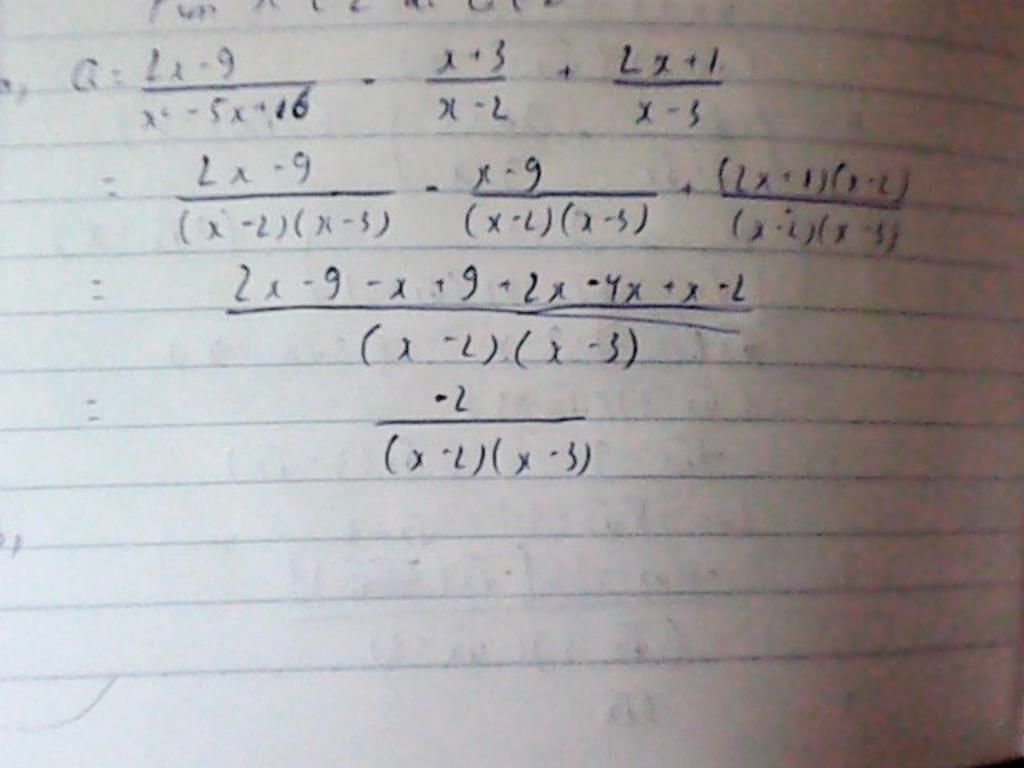 Q = \frac{2x-9}{x^2-5x+6} - \frac{x+3}{x-2} + \frac{2x+1}{x-3}
= \frac{2x-9}{(x-2)(x-3)} - \frac{x-9}{(x-2)(x-3)} + \frac{(2x+1)(x-2)}{(x-2)(x-3)}
= \frac{2x-9-x+9+2x-4x+x-2}{(x-2)(x-3)}
= \frac{-2}{(x-2)(x-3)}